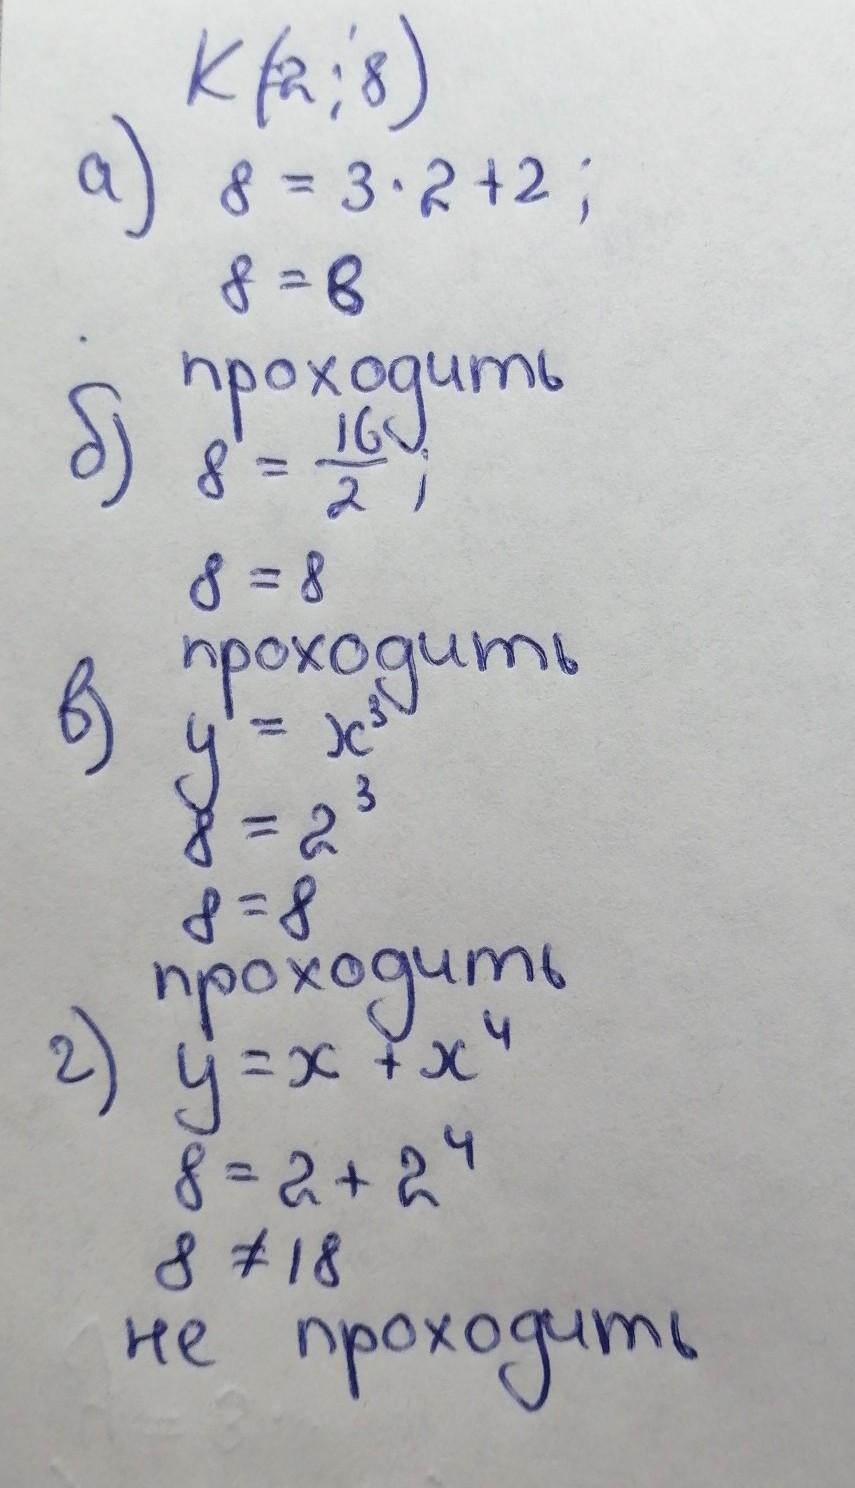 K(2;8)
а) 8 = 3·2+2;
8 = 8
проходить
б) 8 = 16/2;
8 = 8
проходить
в) y = x³
8 = 2³
8 = 8
проходить
г) y = x + x⁴
8 = 2 + 2⁴
8 ≠ 18
не проходить